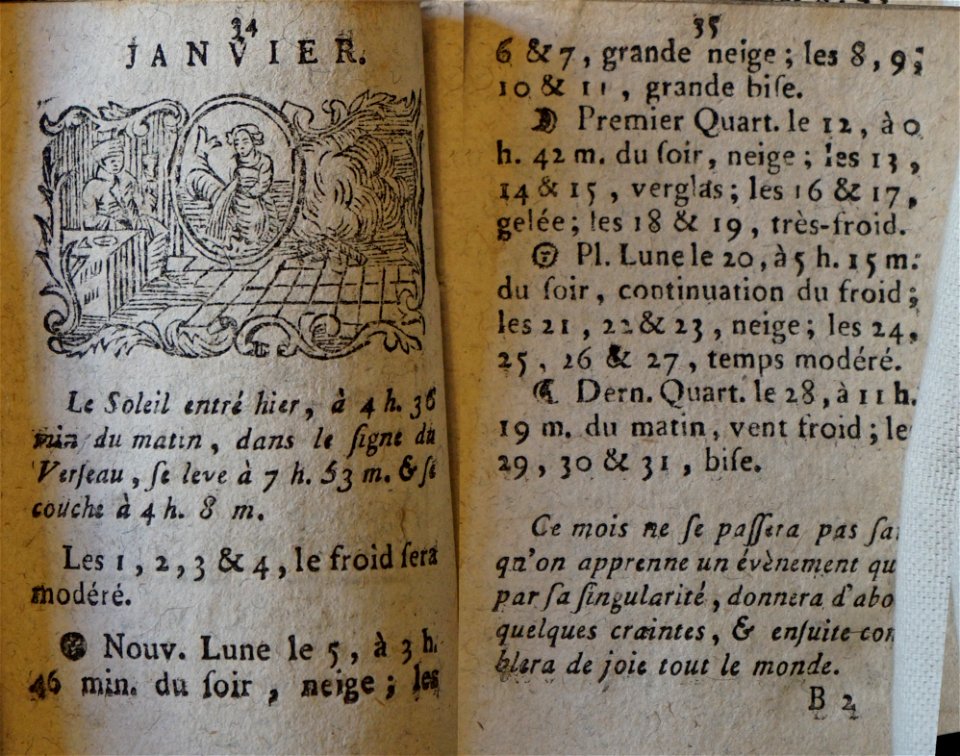 34
JANVIER.
Le Soleil entré hier, à 4 h. 36
min du matin, dans le ſigne du
Verſeau, ſe leve à 7 h. 53 m. & ſe
couche à 4 h. 8 m.
Les 1, 2, 3 & 4, le froid ſera
modéré.
Nouv. Lune le 5, à 3 h.
46 min. du ſoir, neige; les
35
6 & 7, grande neige; les 8, 9;
10 & 11, grande biſe.
Premier Quart. le 12, à 0
h. 42 m. du ſoir, neige; les 13,
14 & 15, verglas; les 16 & 17,
gelée; les 18 & 19, très-froid.
Pl. Lune le 20, à 5 h. 15 m.
du ſoir, continuation du froid;
les 21, 22 & 23, neige; les 24,
25, 26 & 27, temps modéré.
Dern. Quart. le 28, à 11 h.
19 m. du matin, vent froid; le
29, 30 & 31, biſe.
Ce mois ne ſe paſſera pas ſa
qu'on apprenne un évènement qu
par ſa ſingularité, donnera d'abo
quelques craintes, & enſuite con
blera de joie tout le monde.
B 2